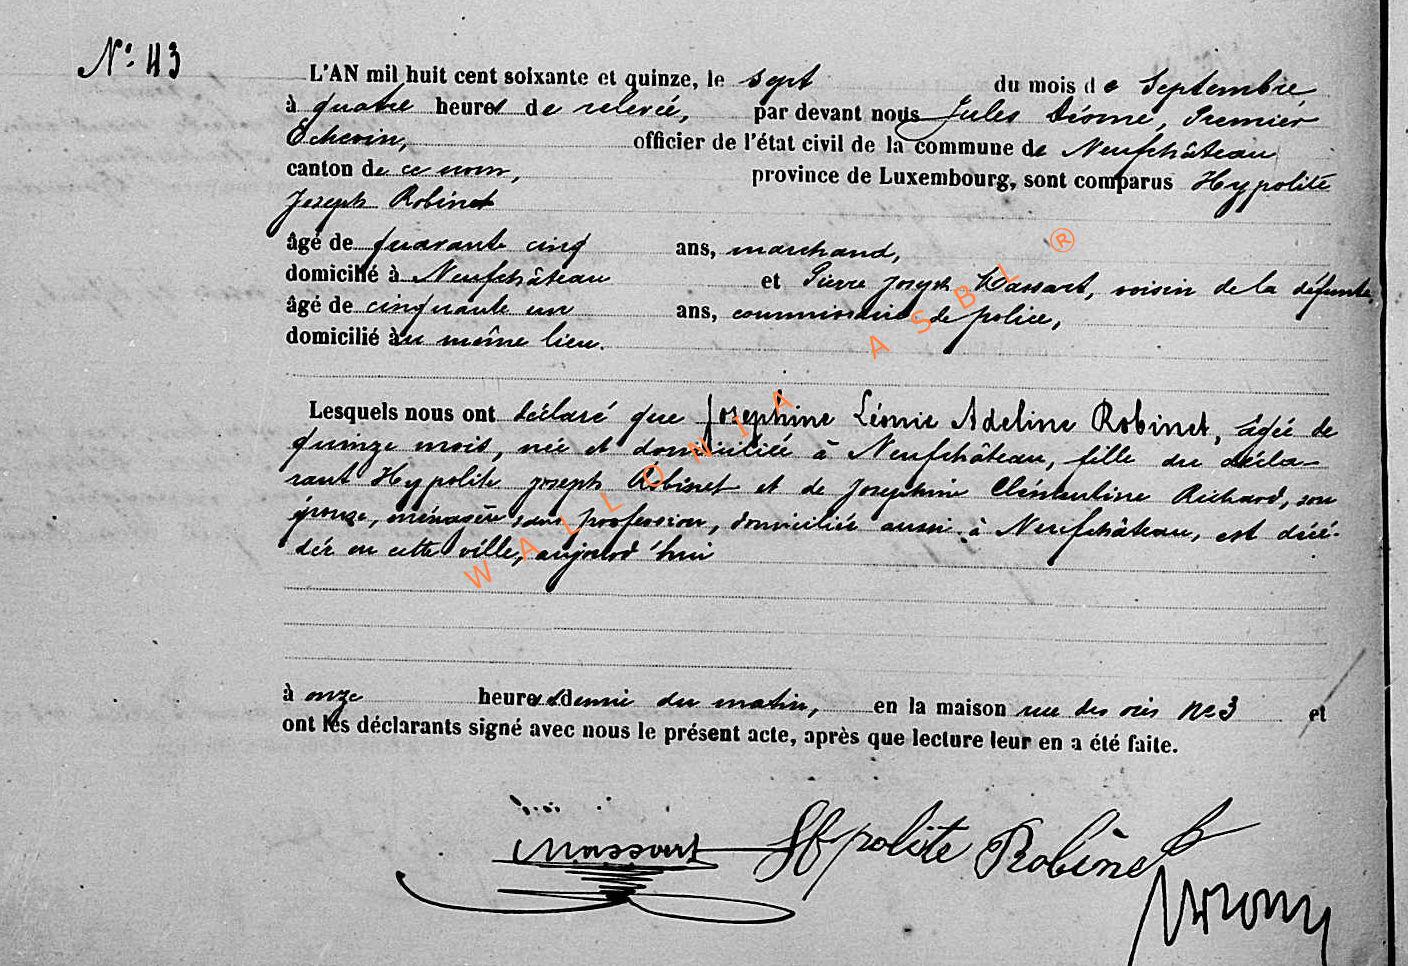 N° 43
L'AN mil huit cent soixante et quinze, le sept du mois de Septembre
à quatre heures de relevée, par devant nous Jules Diome, Premier
Echevin, officier de l'état civil de la commune de Neufchâteau
canton de ce nom, province de Luxembourg, sont comparus Hypolite
Joseph Robinet
âgé de quarante cinq ans, marchand,
domicilié à Neufchâteau et Pierre Joseph Massart, voisin de la défunte
âgé de cinquante un ans, commissaire de police,
domicilié au même lieu.
Lesquels nous ont déclaré que Josephine Léonie Adeline Robinet, âgée de
quinze mois, née et domiciliée à Neufchâteau, fille du décla-
rant Hypolite Joseph Robinet et de Josephine Clémentine Richard, son
épouse, ménagère, sans profession, domiciliée aussi à Neufchâteau, est décé-
dée en cette ville, aujourd'hui
à onze heures & demie du matin, en la maison rue des ours N° 3 et
ont les déclarants signé avec nous le présent acte, après que lecture leur en a été faite.
Massart Hypolite Robinet
WALLONIA ASBL ®